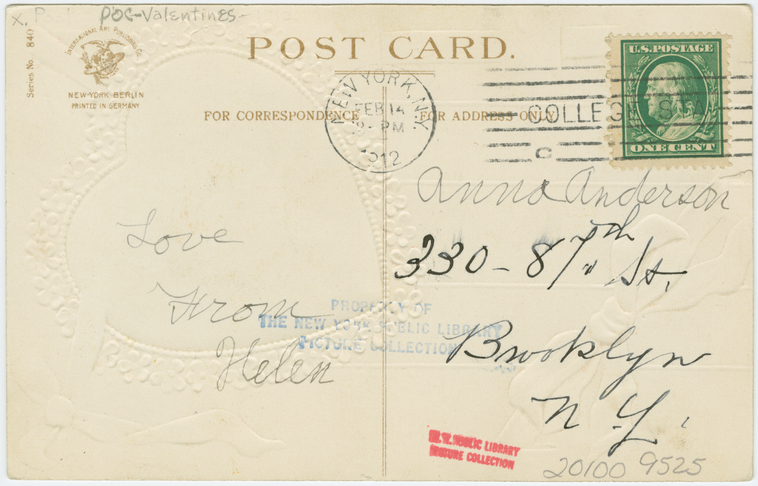 POC-Valentines-
Series No. 840
INTERNATIONAL ART PUBLISHING CO.
NEW-YORK BERLIN
PRINTED IN GERMANY
POST CARD.
FOR CORRESPONDENCE
FOR ADDRESS ONLY
NEW YORK, N.Y.
FEB 14
PM
1912
COLLEGE ST
C
U.S. POSTAGE
ONE CENT
Anna Anderson
330 - 87th St.
Brooklyn
N. Y.
Love
From
Helen
PROPERTY OF
THE NEW YORK PUBLIC LIBRARY
PICTURE COLLECTION
N.Y. PUBLIC LIBRARY
PICTURE COLLECTION
20100 9525